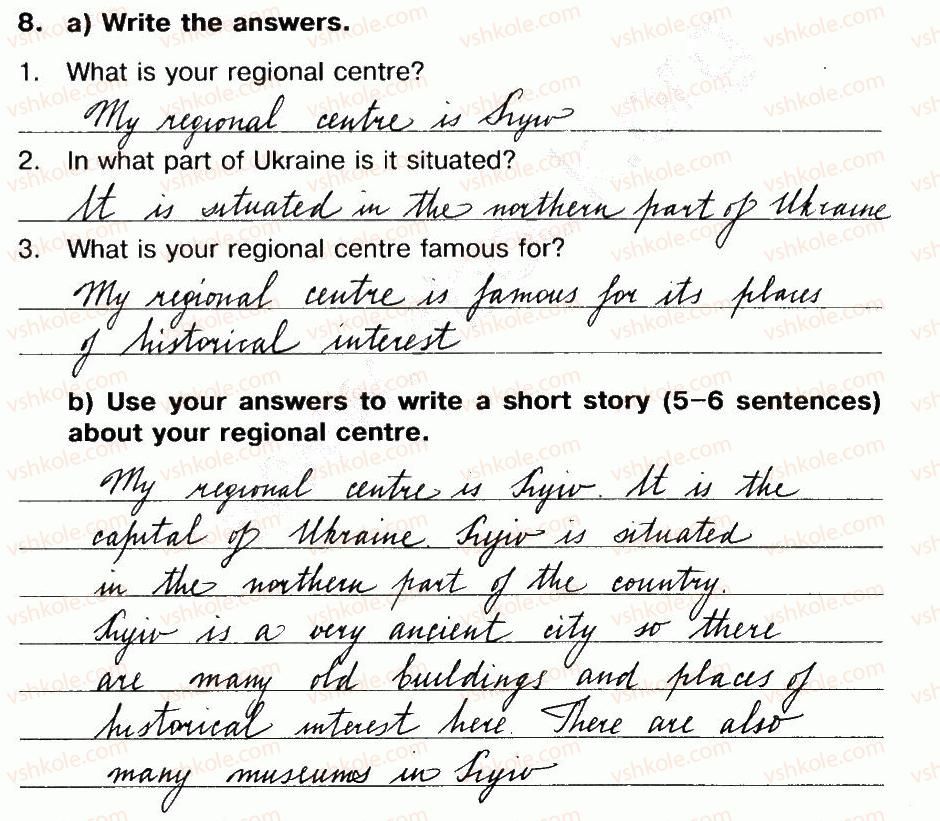 8. a) Write the answers.
1. What is your regional centre?
My regional centre is Kyiv
2. In what part of Ukraine is it situated?
It is situated in the northern part of Ukraine
3. What is your regional centre famous for?
My regional centre is famous for its places
of historical interest
b) Use your answers to write a short story (5–6 sentences)
about your regional centre.
My regional centre is Kyiv. It is the
capital of Ukraine. Kyiv is situated
in the northern part of the country.
Kyiv is a very ancient city so there
are many old buildings and places of
historical interest here. There are also
many museums in Kyiv
vshkole.com